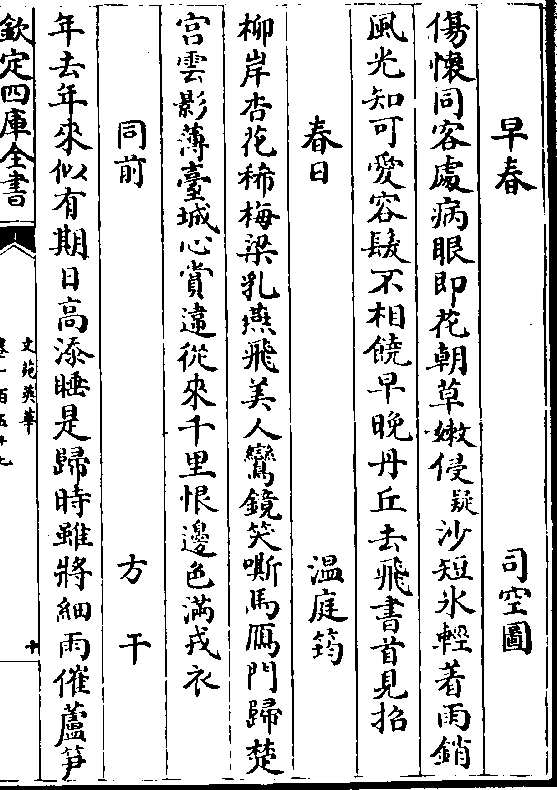 早春　司空圖
傷懷同客處病眼即花朝草嫩侵疑沙短氷輕着雨銷
風光知可愛容髮不相饒早晚丹丘去飛書首見招
春日　温庭筠
柳岸杏花稀梅梁乳燕飛美人鸞鏡笑嘶馬鴈門歸楚
宫雲影薄臺城心賞違從來千里恨邊色滿戎衣
同前　方干
年去年來似有期日高添睡是歸時雖將細雨催蘆笋
欽定四庫全書
文苑英華
卷一百五十七
十